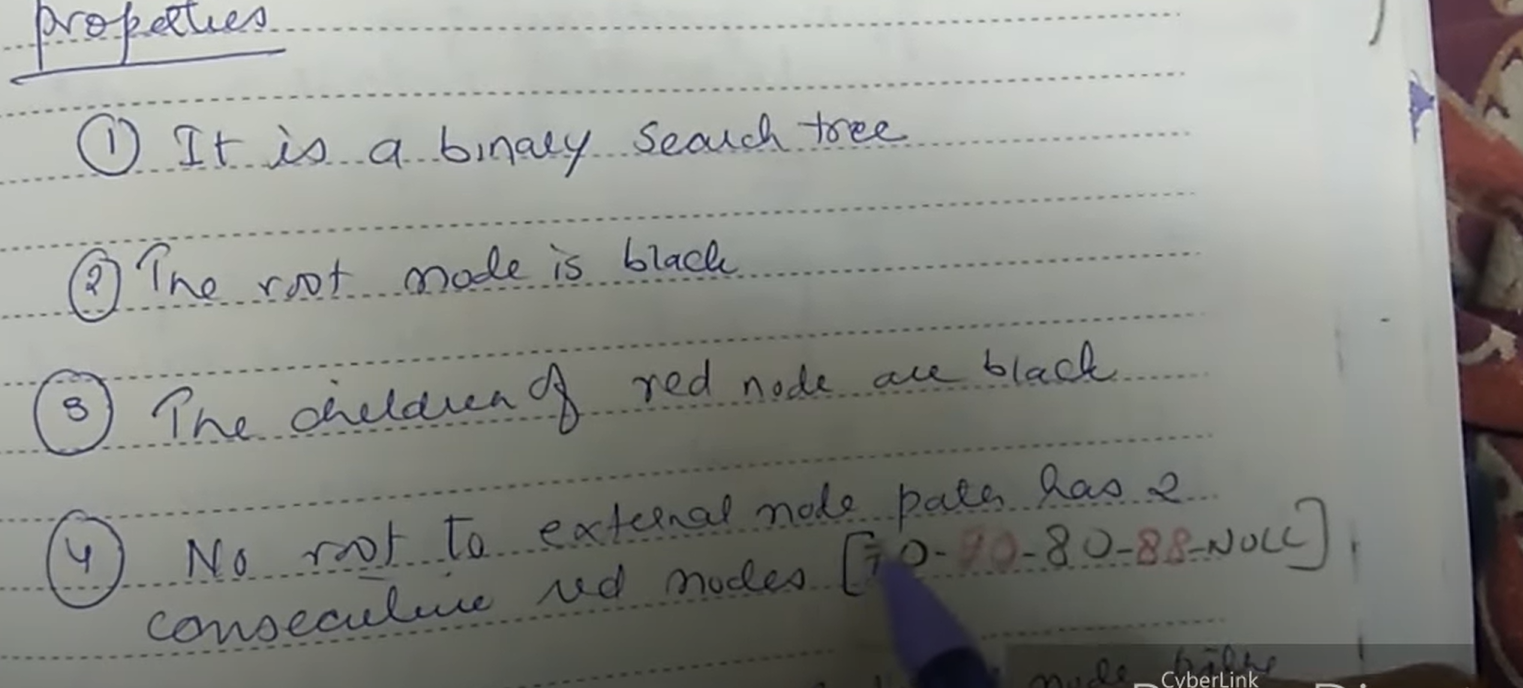 properties
① It is a binary search tree
② The root node is black
③ The children of red node are black
④ No root to external node path has 2
consecutive red nodes [70-90-80-88-NULL]
node
CyberLink